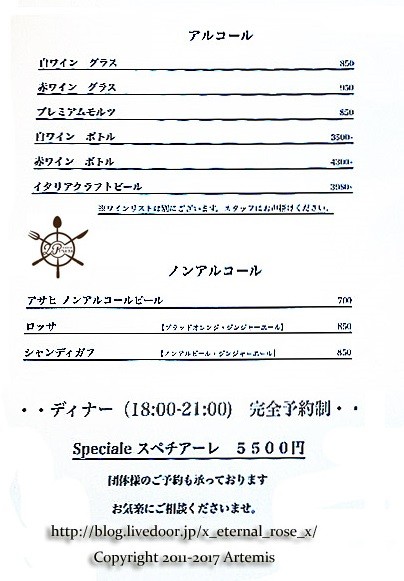 アルコール
白ワイン　グラス 850
赤ワイン　グラス 950
プレミアムモルツ 850
白ワイン　ボトル 3500-
赤ワイン　ボトル 4300-
イタリアクラフトビール 3980-
※ワインリストは別にございます。スタッフにお声掛けください。
ノンアルコール
アサヒ ノンアルコールビール 700
ロッサ 【ブラッドオレンジ・ジンジャーエール】 850
シャンディガフ 【ノンアルビール・ジンジャーエール】 850
・・ディナー（18:00-21:00）　完全予約制・・
Speciale スペチアーレ　５５００円
団体様のご予約も承っております
お気楽にご相談くださいませ。
http://blog.livedoor.jp/x_eternal_rose_x/
Copyright 2011-2017 Artemis